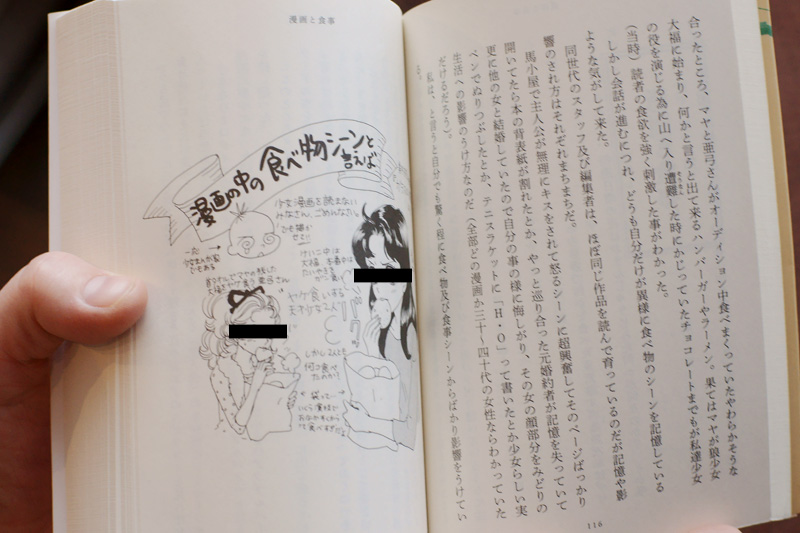 合ったところ、マヤと亜弓さんがオーディション中食べまくっていたやわらかそうな
大福に始まり、何かと言うと出て来るハンバーガーやラーメン。果てはマヤが狼少女
の役を演じる為に山へ入り遭難した時にかじっていたチョコレートまでもが私達少女
(当時)読者の食欲を強く刺激した事がわかった。
しかし会話が進むにつれ、どうも自分だけが異様に食べ物のシーンを記憶している
ような気がして来た。
同世代のスタッフ及び編集者は、ほぼ同じ作品を読んで育っているのだが記憶や影
響のされ方はそれぞれまちまちだ。
馬小屋で主人公が無理にキスをされて怒るシーンに超興奮してそのページばっかり
開いてたら本の背表紙が割れたとか、やっと巡り合った元婚約者が記憶を失っていて
更に他の女と結婚していたので自分の事の様に悔しがり、その女の顔部分をみどりの
ペンでぬりつぶしたとか、テニスラケットに「H・O」って書いたとか少女らしい実
生活への影響のうけ方なのだ(全部どの漫画か三十〜四十代の女性ならわかっていた
だけるだろう)。
私は、と言うと自分でも驚く程に食べ物及び食事シーンからばかり影響をうけてい
る。
116
漫画と食事
漫画の中の食べ物シーンと言えば
少女漫画を読まない
みなさん、ごめんなさい。
けいこ中は
大福 本番中は
たいやきを
ヤケ食いする
天才少女2人
バク
しかし2人とも
何コ食べ
たのか?
袋って…
いくら